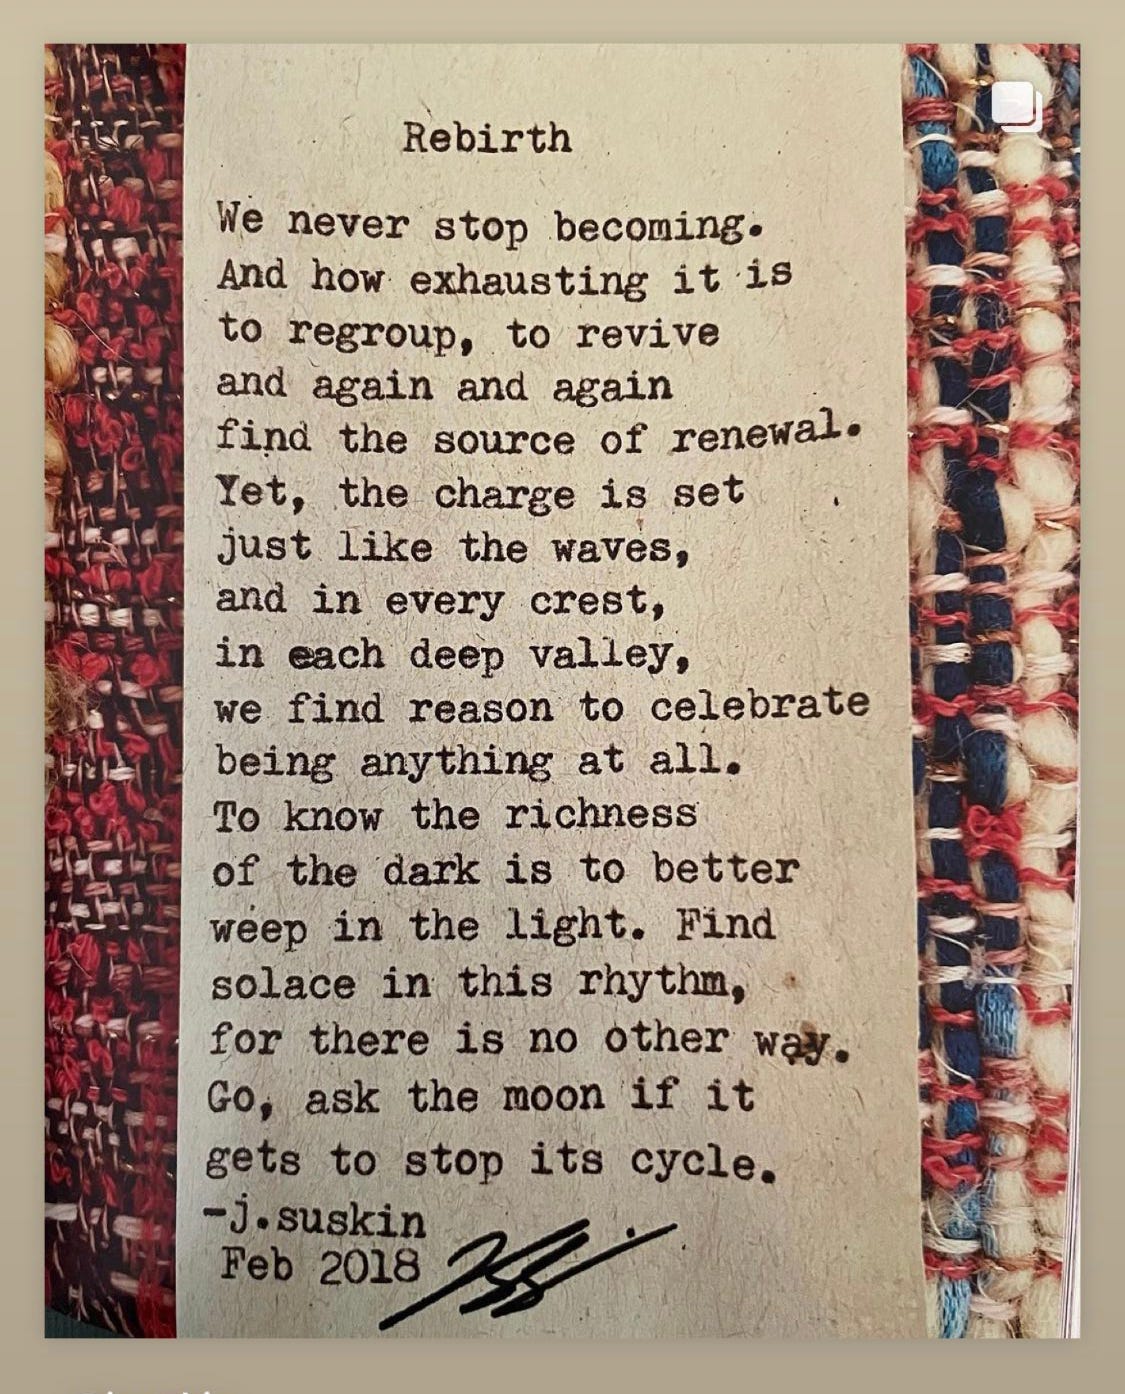 Rebirth
We never stop becoming.
And how exhausting it is
to regroup, to revive
and again and again
find the source of renewal.
Yet, the charge is set
just like the waves,
and in every crest,
in each deep valley,
we find reason to celebrate
being anything at all.
To know the richness
of the dark is to better
weep in the light. Find
solace in this rhythm,
for there is no other way.
Go, ask the moon if it
gets to stop its cycle.
-j.suskin
Feb 2018